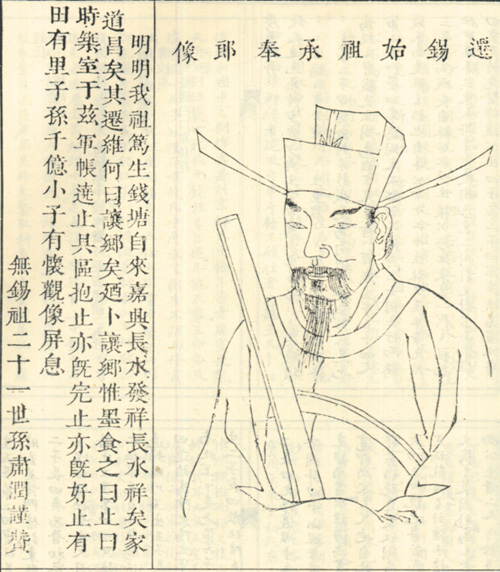 遷錫始祖承奉郎像
明明我祖篤生錢塘自來嘉興長水發祥長水祥矣家
道昌矣其遷維何曰讓鄉矣廼卜讓鄉惟墨食之曰止曰
時築室于茲軍帳遶止具區抱止亦旣完止亦旣好止有
田有里子孫千億小子有懷觀像屏息
無錫祖二十一世孫肅潤謹贊